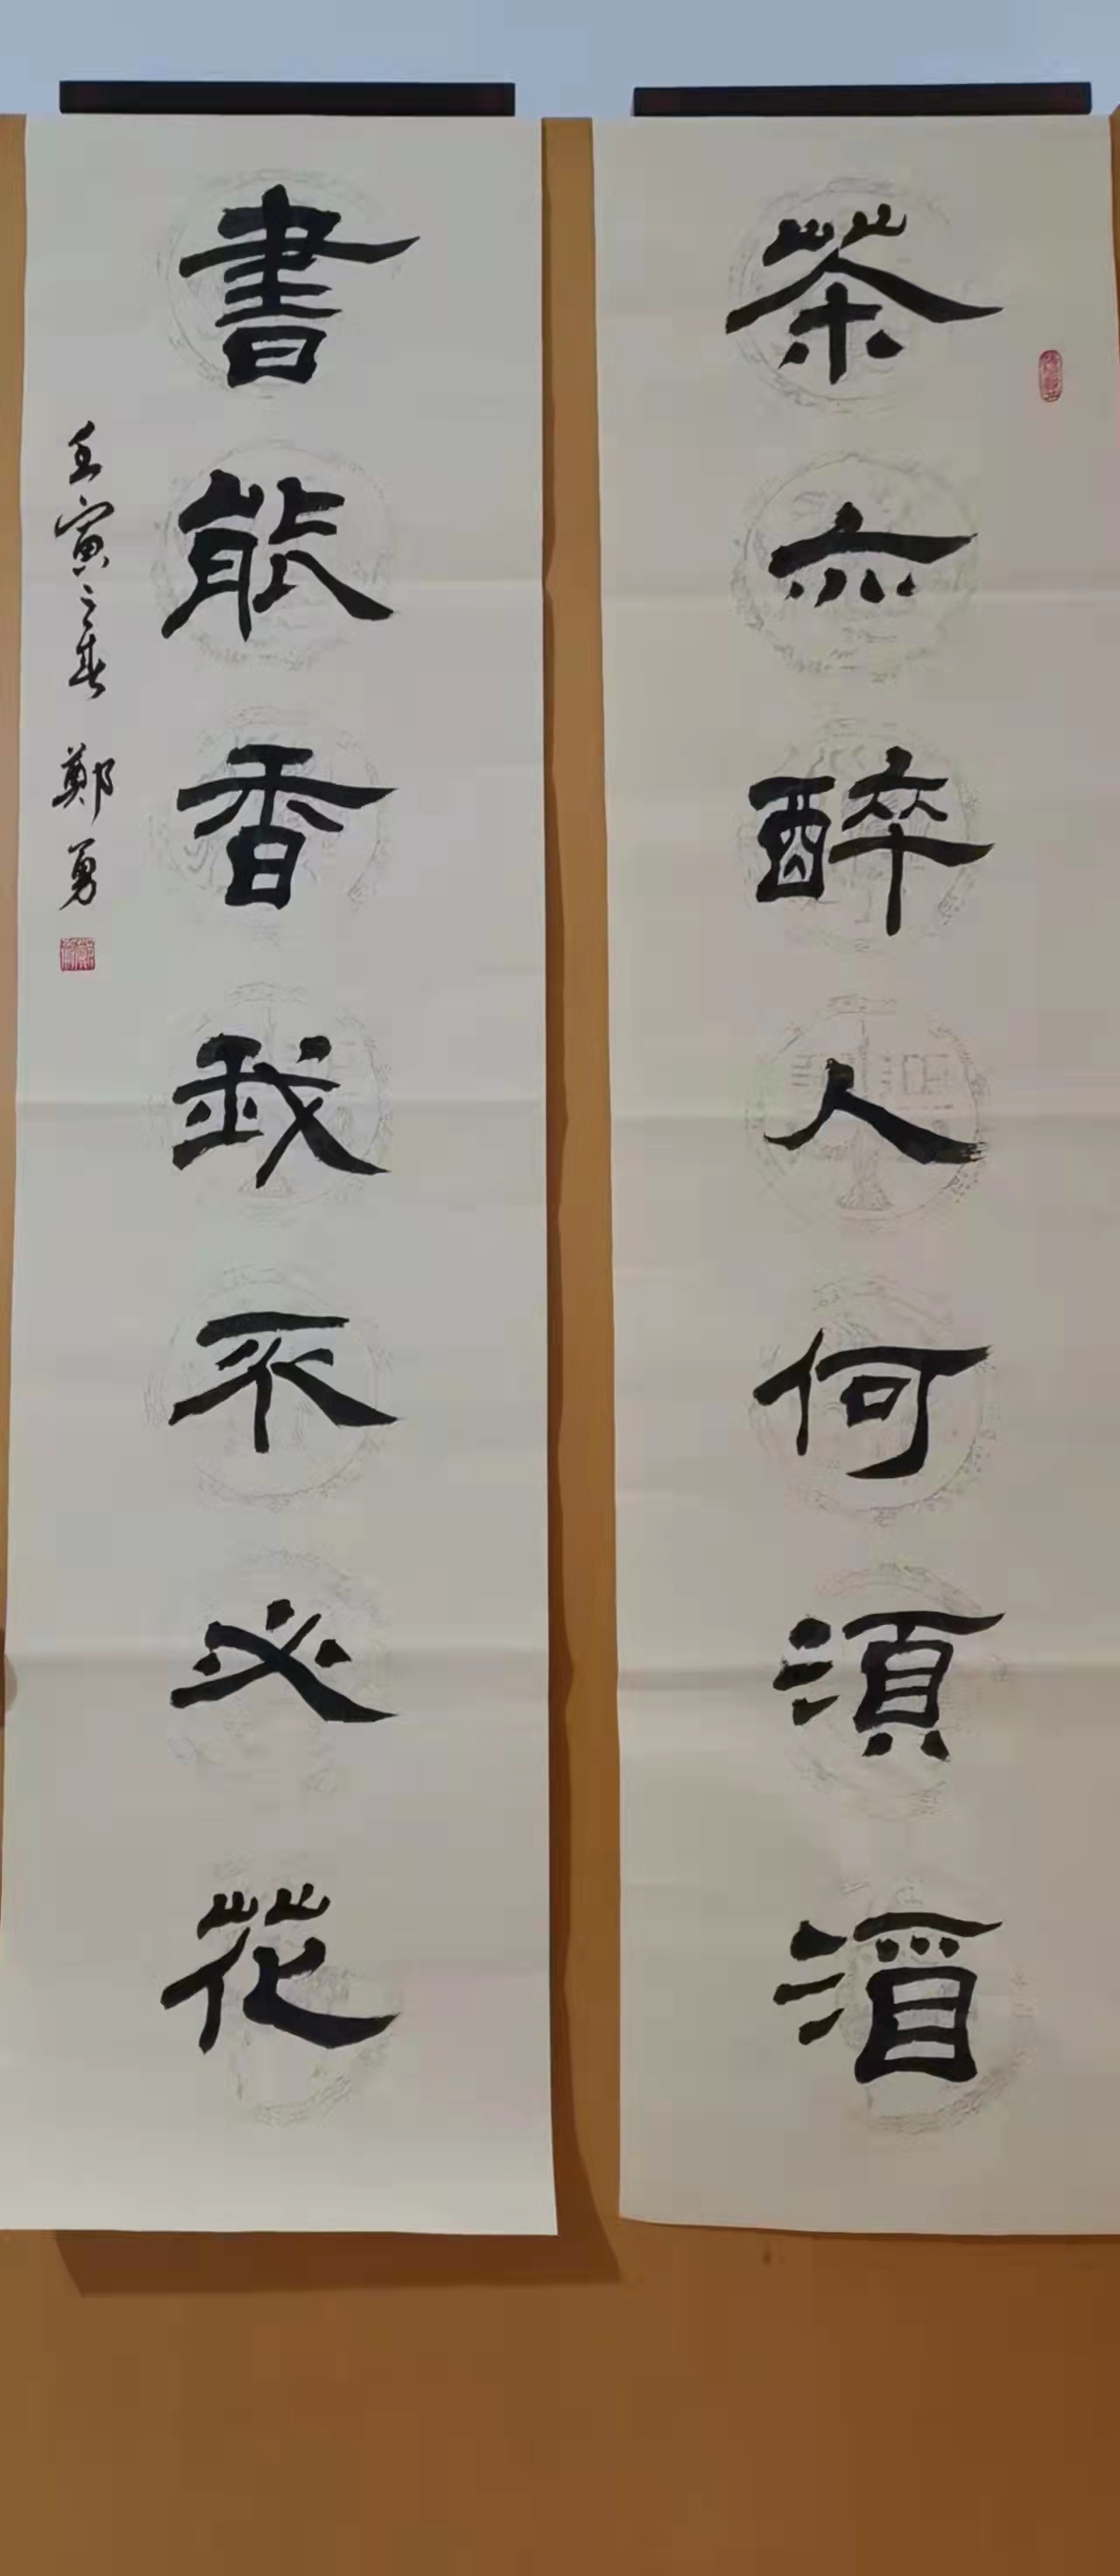 茶亦醉人何須酒
書能香我不必花
壬寅之春 鄭勇